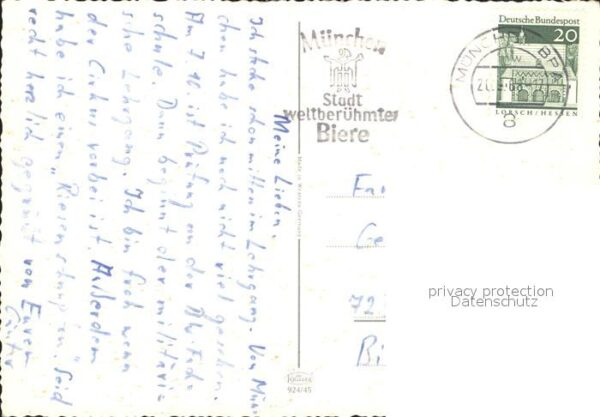 Meine Lieben,
Ich stecke schon mitten im Lehrgang. Von Mün-
chen habe ich noch nicht viel gesehen.
Am 7.10. ist Prüfung an der
schule. Dann beginnt der militäri-
sche Lehrgang. Ich bin froh wenn
der Cirkus vorbei ist. Außerdem
habe ich einen "Riesenschnupfen". Seid
recht herzlich gegrüßt von Eurem
Günter
München
Stadt
weltberühmter
Biere
MÜNCHEN BPA
8
Deutsche Bundespost
20
LORSCH/HESSEN
Made in Western Germany
924/45
Fa
Ge
72
Bi
privacy protection
Datenschutz